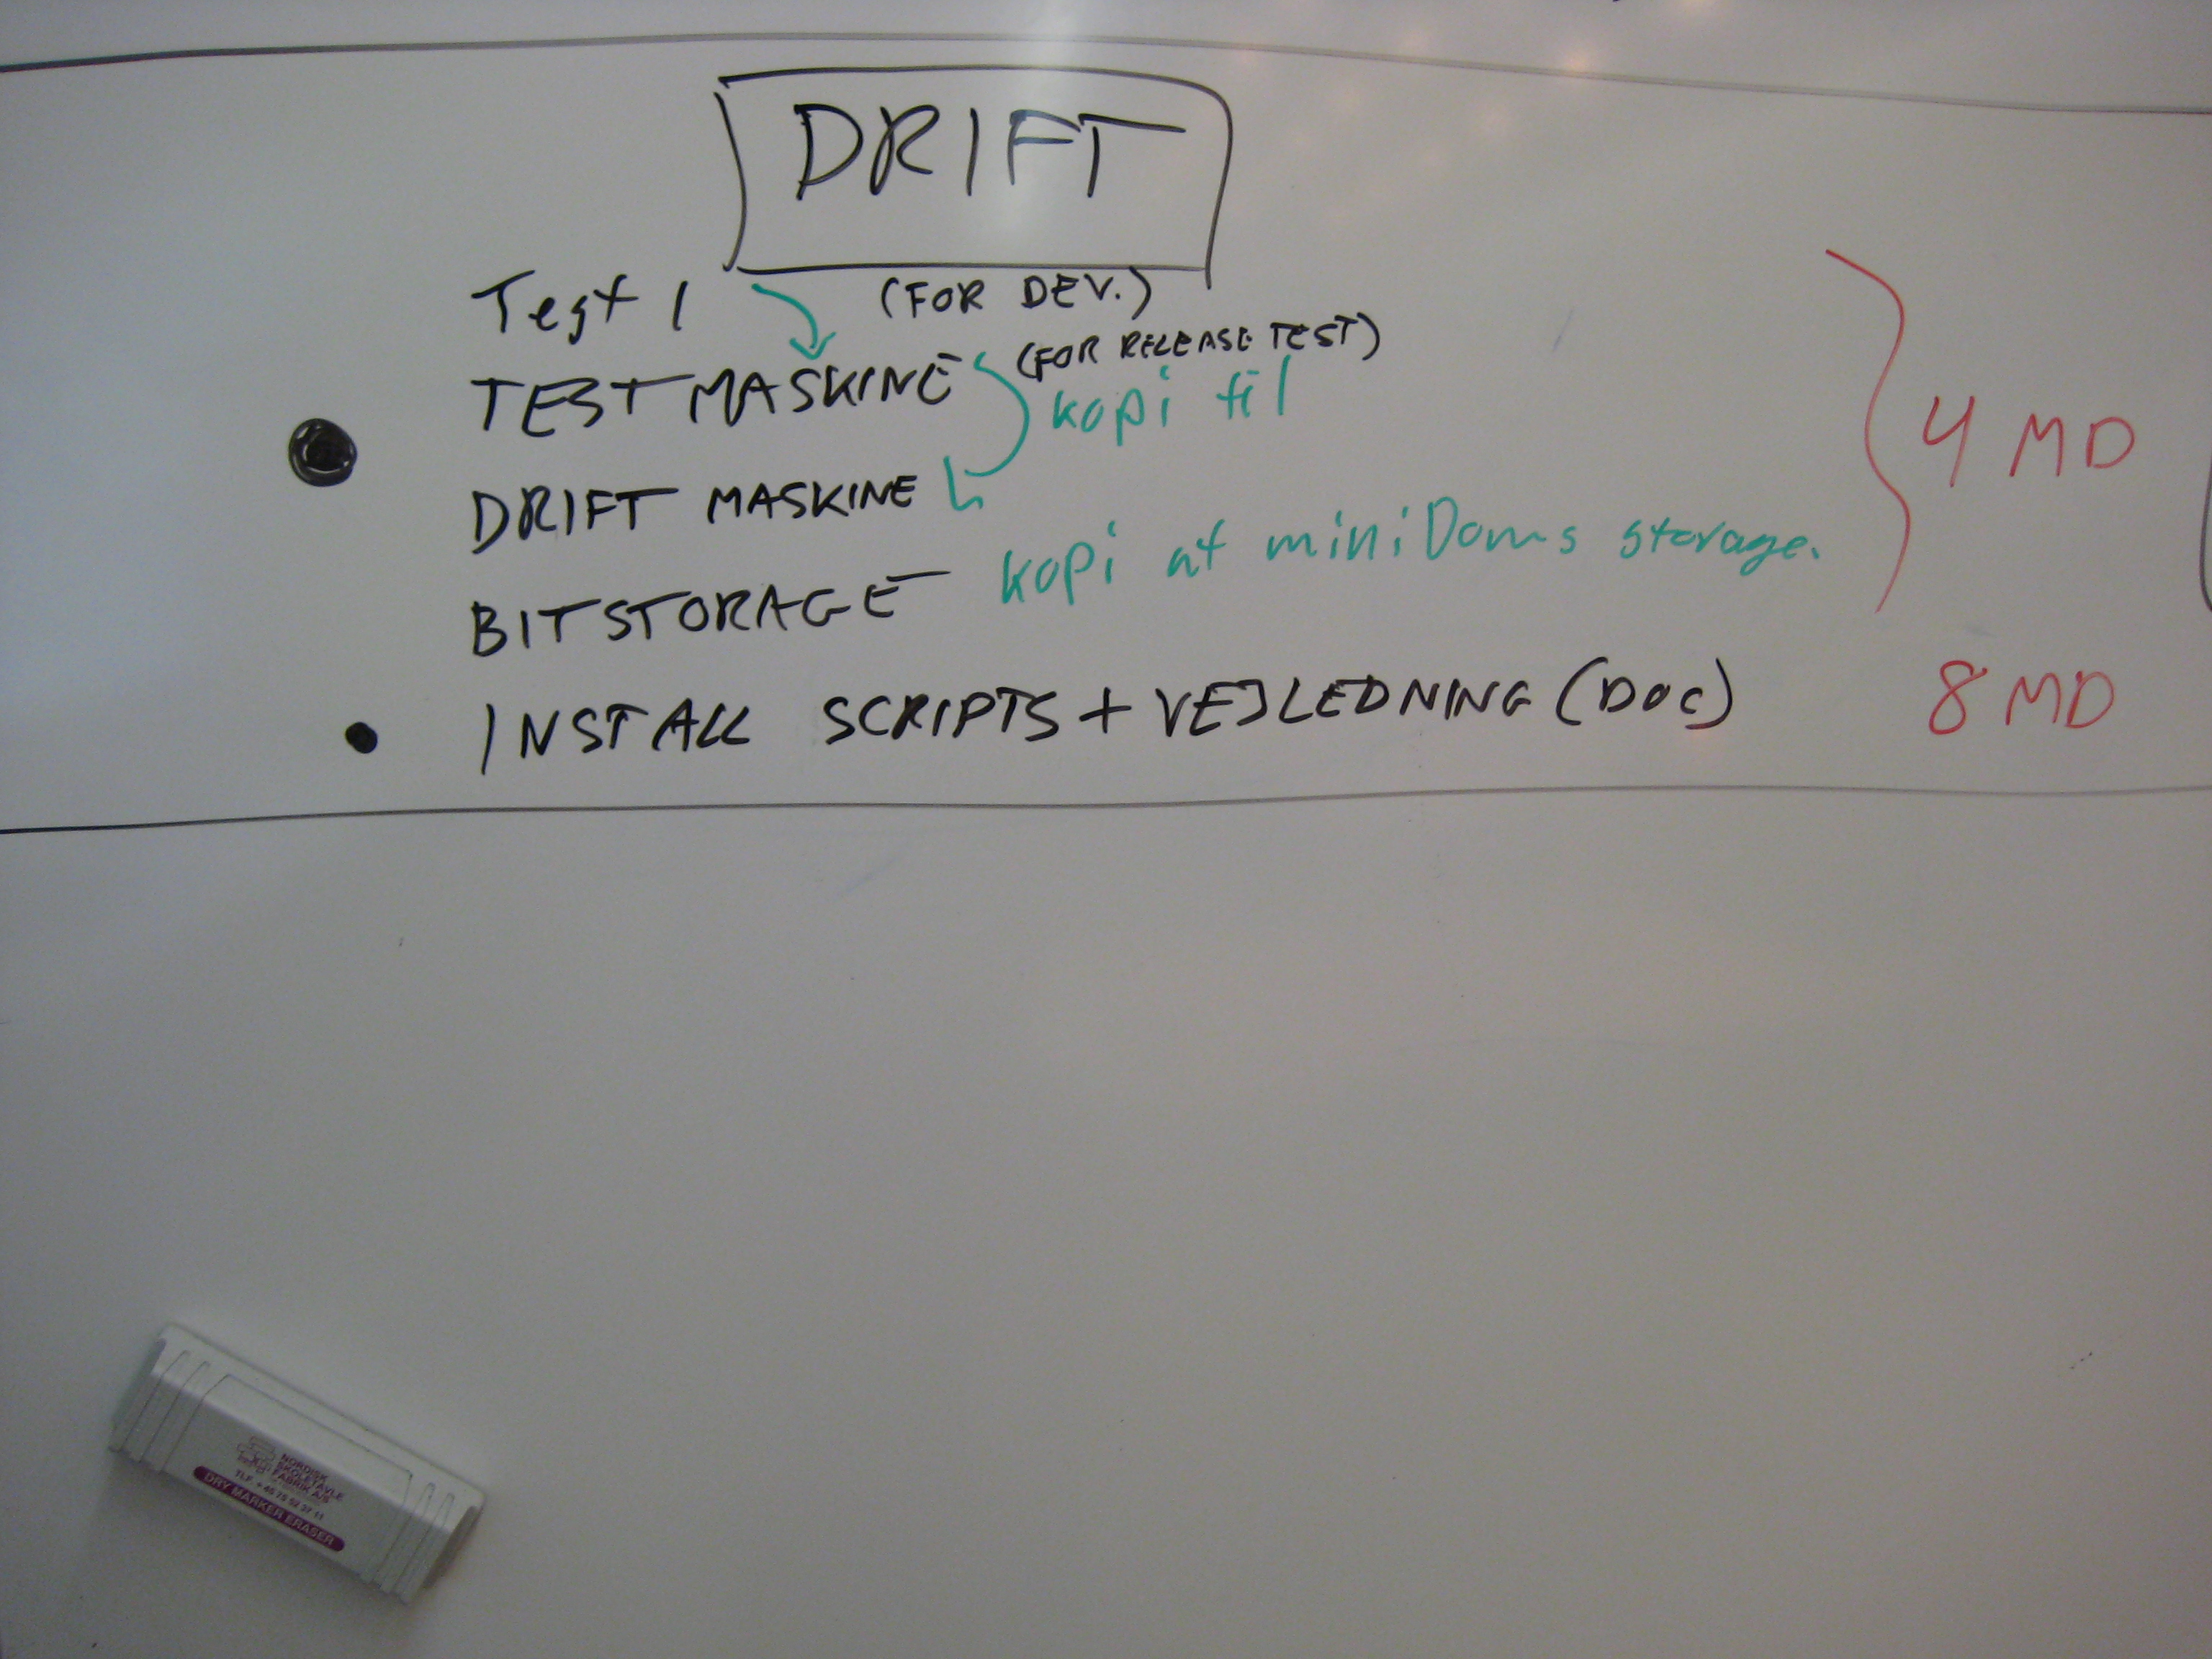 DRIFT
Test 1 (FOR DEV.)
TESTMASKINE (FOR RELEASE TEST)
kopi til
DRIFT MASKINE
BITSTORAGE kopi af miniDoms storage.
4 MD
INSTALL SCRIPTS + VEJLEDNING (DOC) 8 MD
NORDISK
SKOLETAVLE
FABRIK A/S
TLF. +45 75 52 37 11
DRY MARKER ERASER